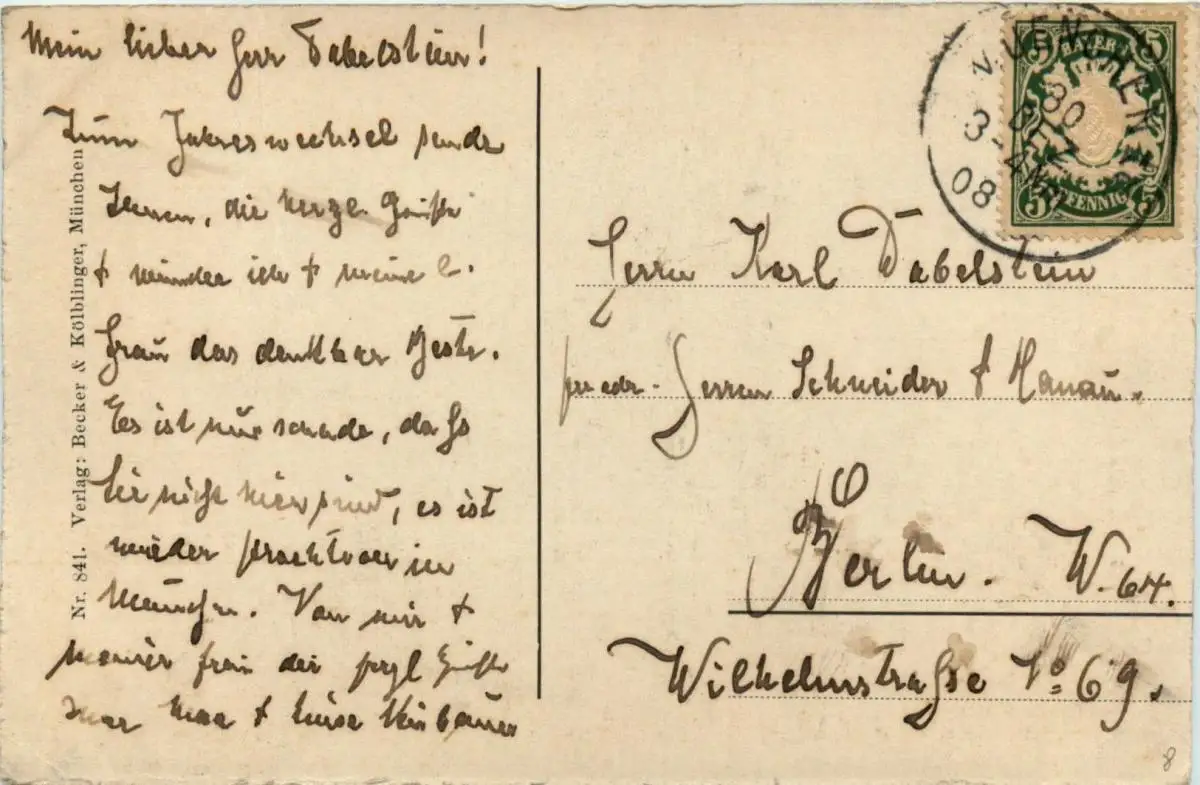 Mein lieber Herr Dabelstein!
Zum Jahreswechsel sende
Ihnen, die herzl. Grüße
+ wünsche ich + meine l.
Frau das denkbar Beste.
Es ist nur schade, daß
Sie nicht hier sind, es ist
wieder prachtvoll in
München. Von mir +
meiner Frau die herzl Grüße
Ihr Max + Luise
Nr. 841. Verlag: Becker & Kölblinger, München
MUENCHEN
30 DEZ
3-4 NM
08
BAYERN
5 5
5 PFENNIG 5
Herrn Karl Dabelstein
per adr. Herren Schneider & Hanau.
Berlin. W. 64.
Wilhelmstraße No 69.
8